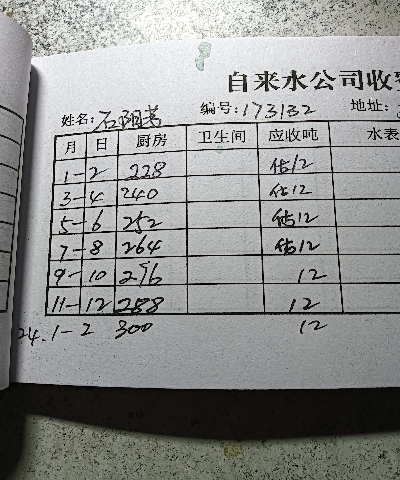 自来水公司收
姓名: 石 编号: 173132 地址:
月 日 厨房 卫生间 应收吨 水表
1-2 228 估12
3-4 240 估12
5-6 252 估12
7-8 264 估12
9-10 276 12
11-12 288 12
24.1-2 300 12